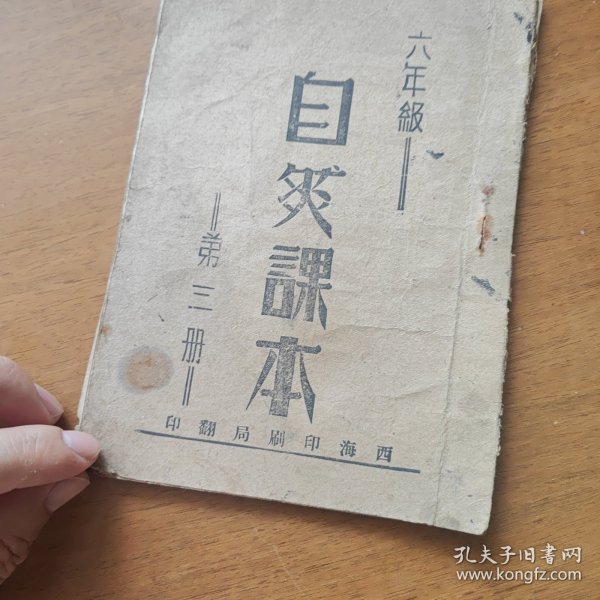 六年級
自然課本
第三册
西海印刷局翻印
孔夫子旧書网
www.kongfz.com